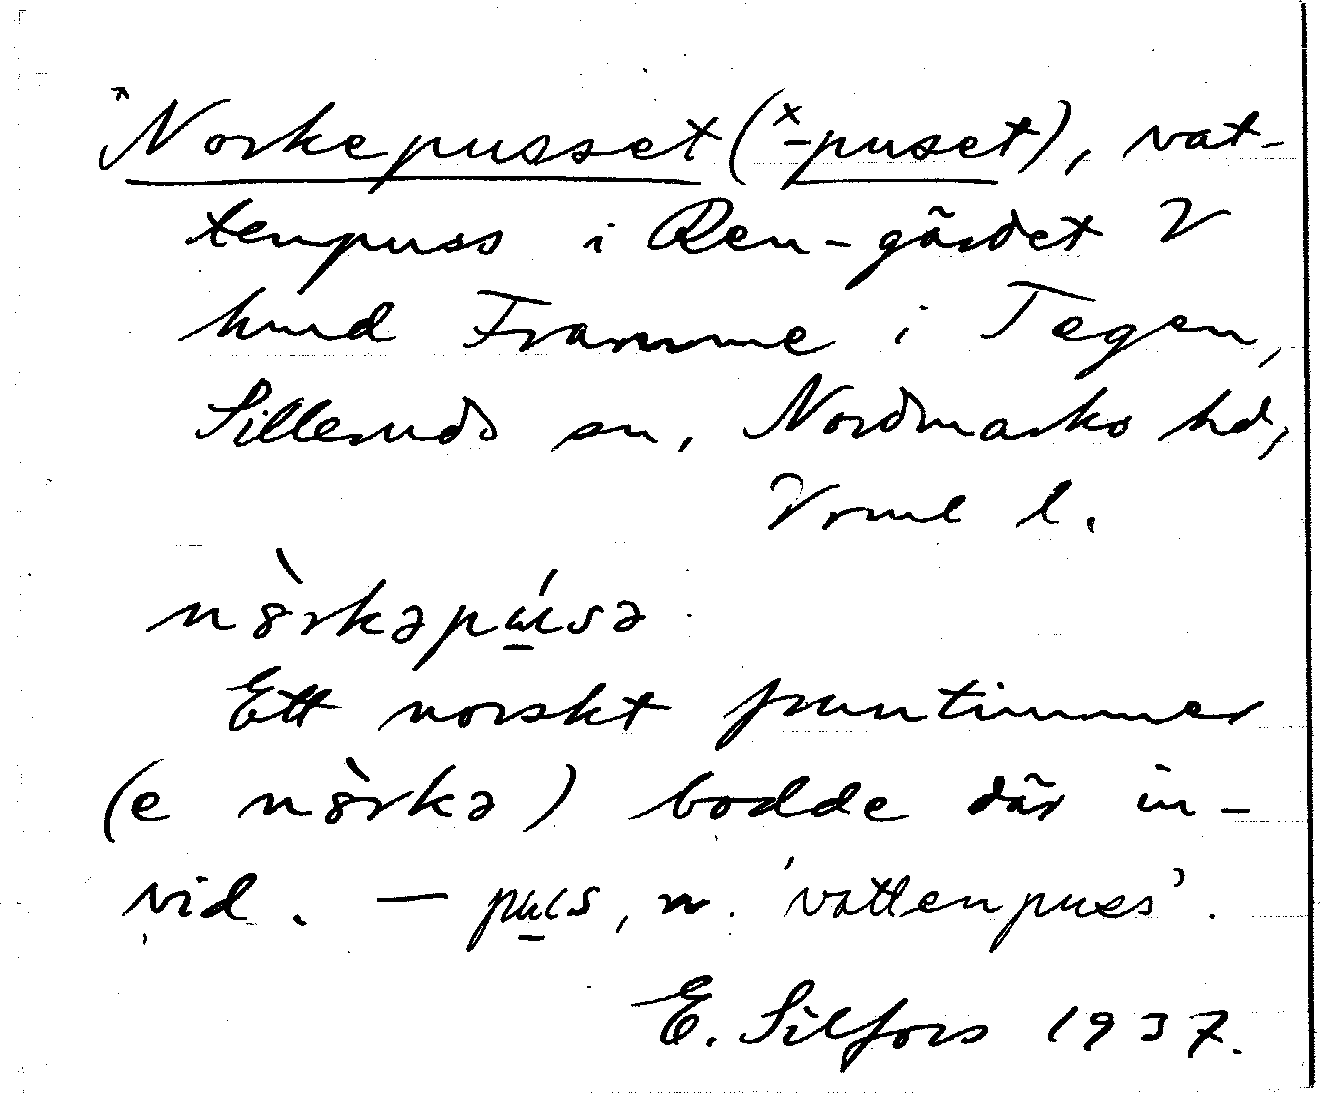 ˣNorkepusset (ˣ-puset), vat-
tenpuss i Ren-gärdet V
hmd Framme i Tegen,
Silleruds sn, Nordmarks hd,
Vrml l.
nò̈rkəpúsə
Ett norskt fruntimmer
(e nò̈rkə) bodde där in-
vid. — pus, n. 'vattenpuss'.
E. Silfors 1937.